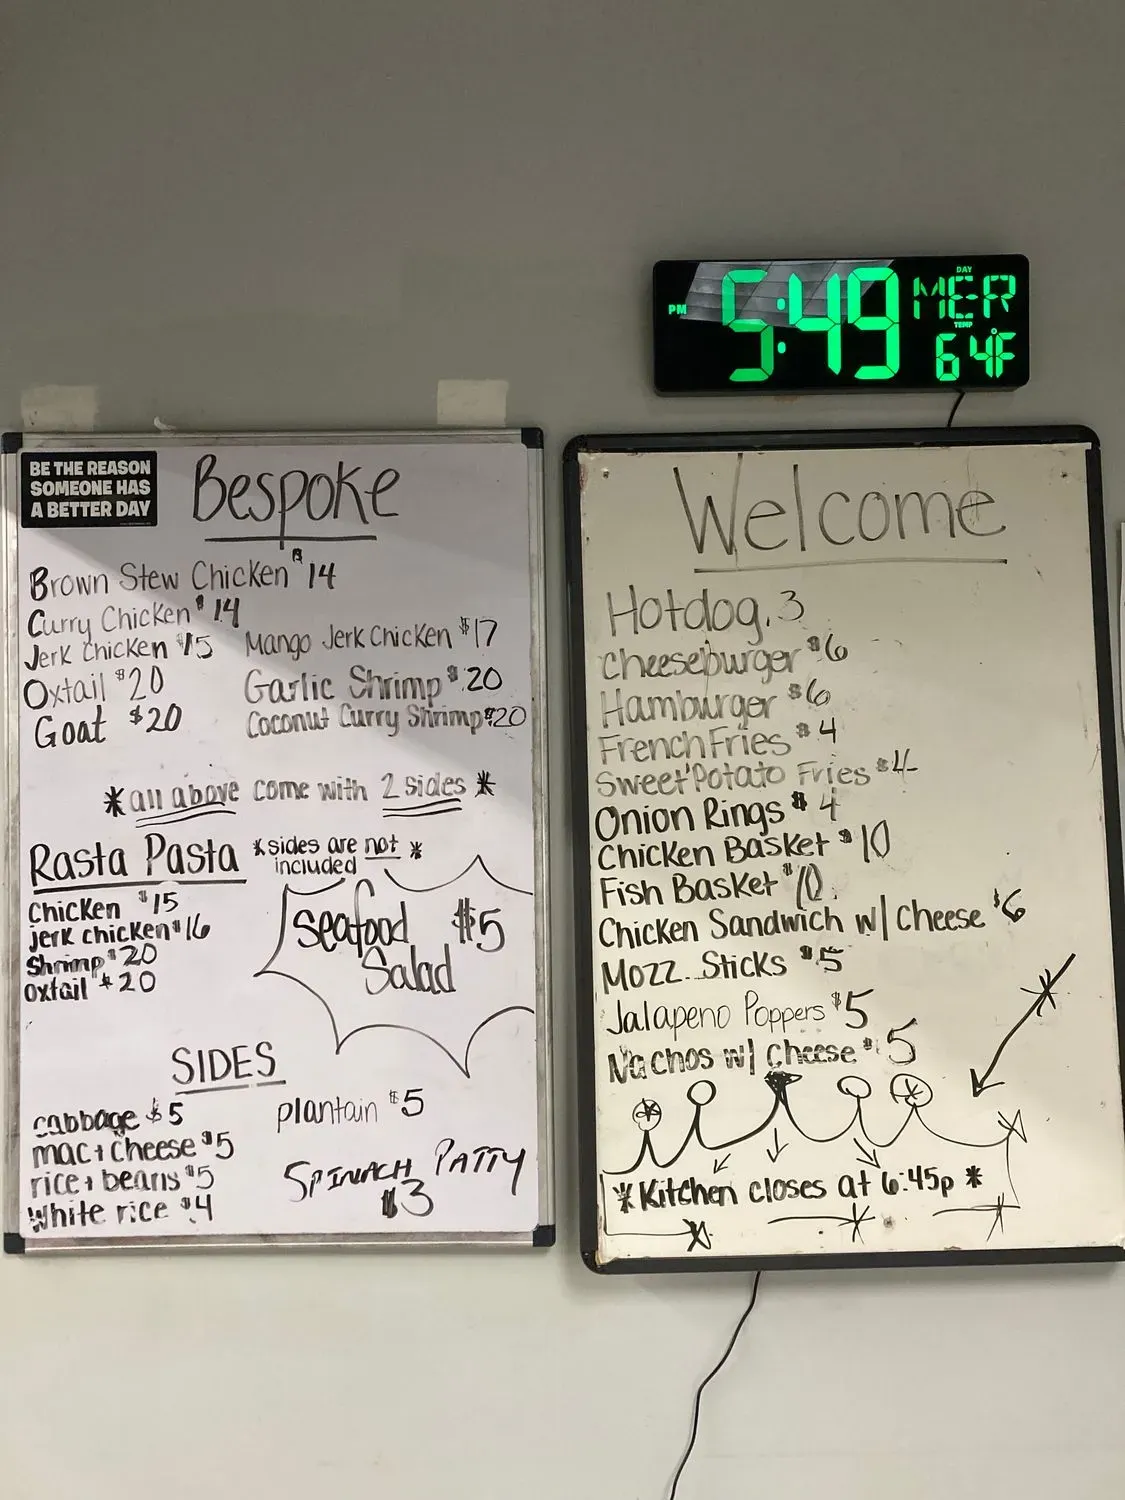 PM 5:49 DAY MER
TEMP 64°F
BE THE REASON
SOMEONE HAS
A BETTER DAY
Bespoke
Brown Stew Chicken $14
Curry Chicken $14
Jerk Chicken $15
Mango Jerk Chicken $17
Oxtail $20
Garlic Shrimp $20
Goat $20
Coconut Curry Shrimp $20
*all above come with 2 sides*
Rasta Pasta
*sides are not *
included
Chicken $15
jerk chicken $16
Shrimp $20
oxtail $20
Seafood $5
Salad
SIDES
cabbage $5
plantain $5
mac + cheese $5
rice + beans $5
White rice $4
SPINACH PATTY
$3
Welcome
Hotdog. 3
Cheeseburger $6
Hamburger $6
French Fries $4
Sweet Potato Fries $4
Onion Rings $4
Chicken Basket $10
Fish Basket $10
Chicken Sandwich w/ Cheese $6
Mozz. Sticks $5
Jalapeno Poppers $5
Nachos w/ Cheese $5
*Kitchen closes at 6:45p *